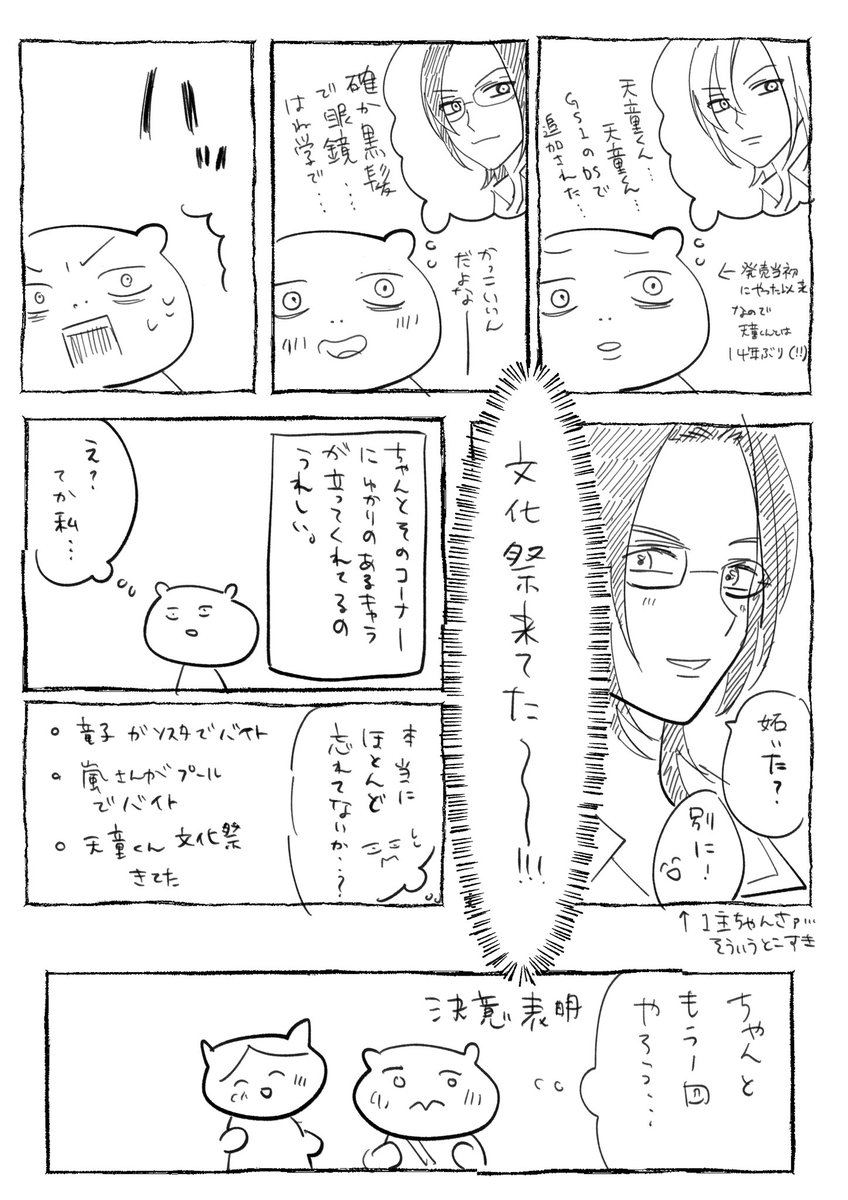 天童くん…
天童くん…
GS1のDSで
追加された…
← 発売当初
にやった以来
なので
天童くんとは
14年ぶり(!!)
確か黒髪
で眼鏡…
はね学で…
かっこいいん
だよなーー
バッ
文化祭来てた〜〜!!!
妬いた?
別に!
↑1主ちゃんさァ…
そういうとこすき
ちゃんとそのコーナー
にゆかりのあるキャラ
が立ってくれてるの
うれしい。
え?
てか私…
本当に
ほとんど
忘れてないか…?
○ 竜子がソスタでバイト
○ 嵐さんがプール
でバイト
○ 天童くん文化祭
きてた
ちゃんと
もう1回
やろう…
決意表明